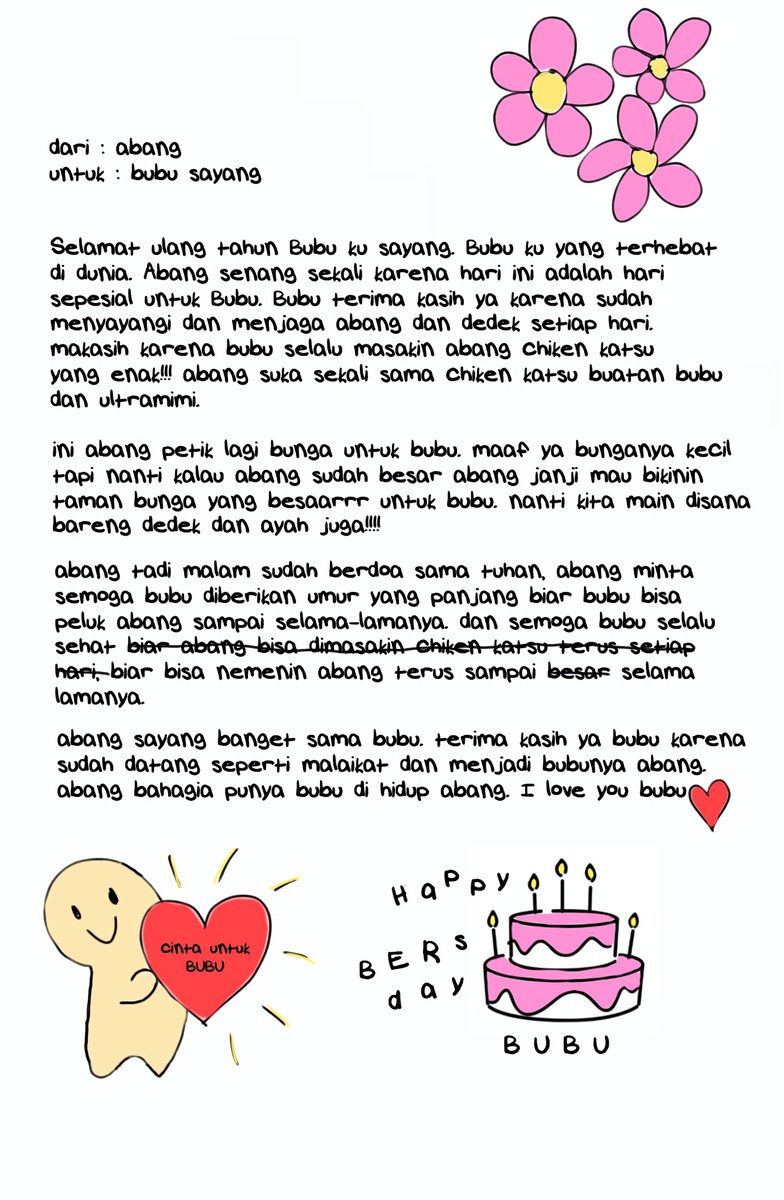 dari : abang
untuk : bubu sayang
Selamat ulang tahun Bubu ku sayang. Bubu ku yang terhebat
di dunia. Abang senang sekali karena hari ini adalah hari
sepesial untuk Bubu. Bubu terima kasih ya karena sudah
menyayangi dan menjaga abang dan dedek setiap hari.
makasih karena bubu selalu masakin abang chiken katsu
yang enak!!! abang suka sekali sama chiken katsu buatan bubu
dan ultramimi.
ini abang petik lagi bunga untuk bubu. maaf ya bunganya kecil
tapi nanti kalau abang sudah besar abang janji mau bikinin
taman bunga yang besaarrr untuk bubu. nanti kita main disana
bareng dedek dan ayah juga!!!!
abang tadi malam sudah berdoa sama tuhan, abang minta
semoga bubu diberikan umur yang panjang biar bubu bisa
peluk abang sampai selama-lamanya. dan semoga bubu selalu
sehat biar abang bisa dimasakin chiken katsu terus setiap
hari, biar bisa nemenin abang terus sampai besar selama
lamanya.
abang sayang banget sama bubu. terima kasih ya bubu karena
sudah datang seperti malaikat dan menjadi bubunya abang.
abang bahagia punya bubu di hidup abang. I love you bubu
cinta untuk
BUBU
Happy
BERS
day
BUBU